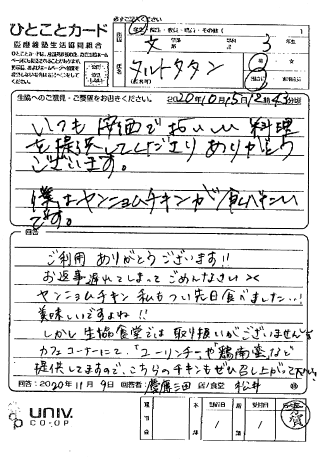 ひとことカード
慶應義塾生活協同組合
必ずご記入ください
文
3
タルトタタン
生協へのご意見・ご要望をお書きください。 2020年10月15日12時43分頃
いつも 安価で おいしい 料理
を提供してくださりありがとう
ございます。
僕はヤンニョムチキンが食べたい
です。
回答
ご利用 ありがとうございます!!
お返事遅れてしまって ごめんなさい
ヤンニョムチキン 私もつい先日食べました…!
美味しいですよね!!
しかし生協食堂では 取り扱いがございません
カフェコーナーにて、「ユーリンチー」や「鶏南蛮」など
提供してますので、こちらのチキンもぜひ召し上がって下さい
回答:2020年11月9日 回答者 慶應三田 店/食堂 松井
UNIV.
CO-OP